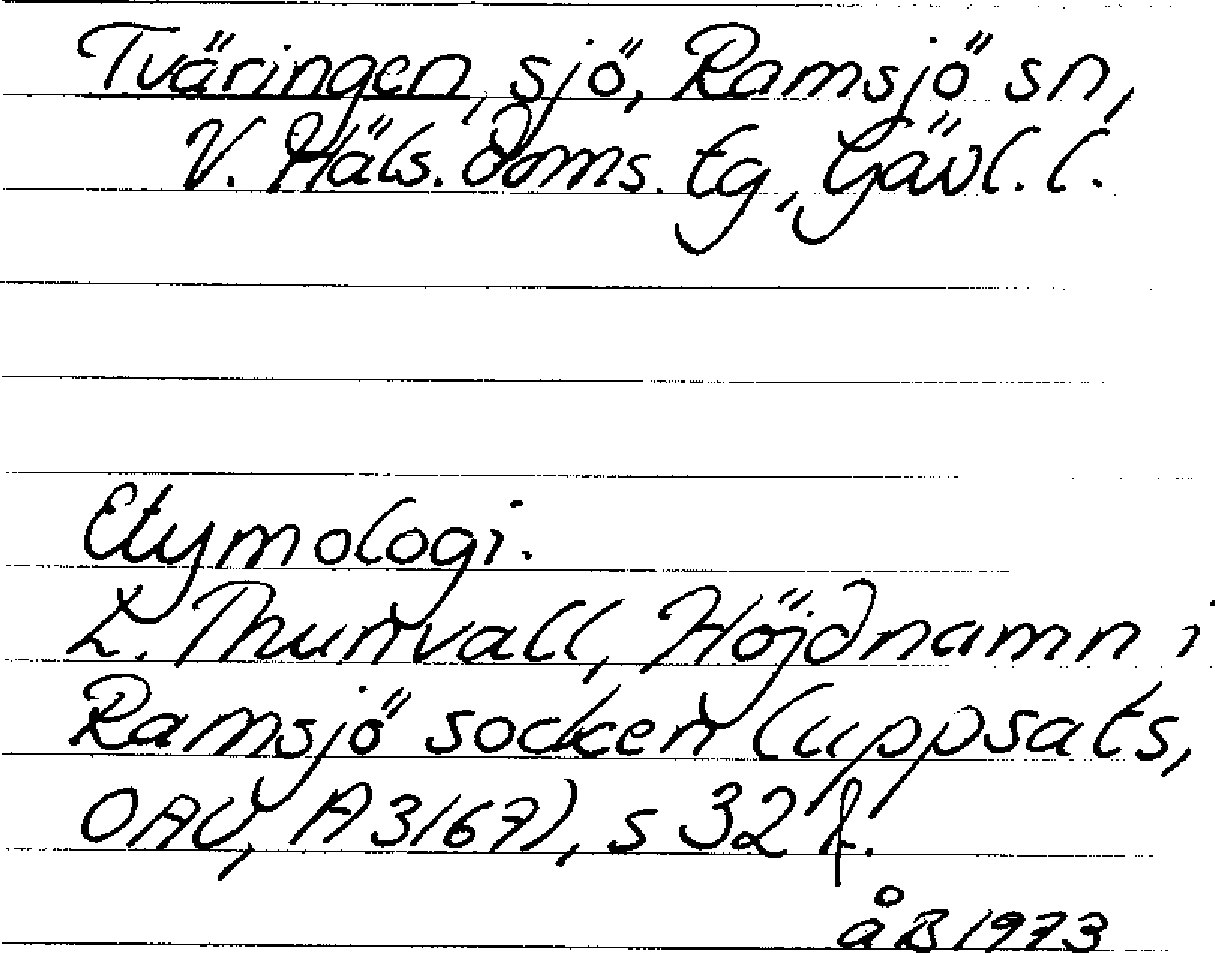 Tväringen, sjö, Ramsjö sn,
V. Häls. doms. tg, Gävl. l.
Etymologi.
L. Thunvall, Höjdnamn i
Ramsjö socken (uppsats,
OAU, A3/67), s 32 f.
åB 1973